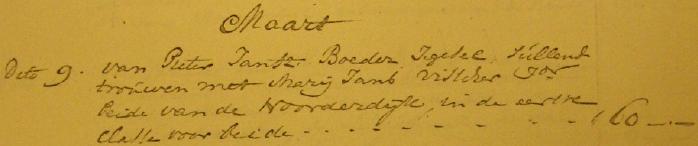 Maart
Dito 9. van Pieter Jansz. Boeder Zullend
trouwen met Marij Jans Visscher
beide van de Noorderdijk, in de eerste
Classe voor beide - - - - - - - - 60 -